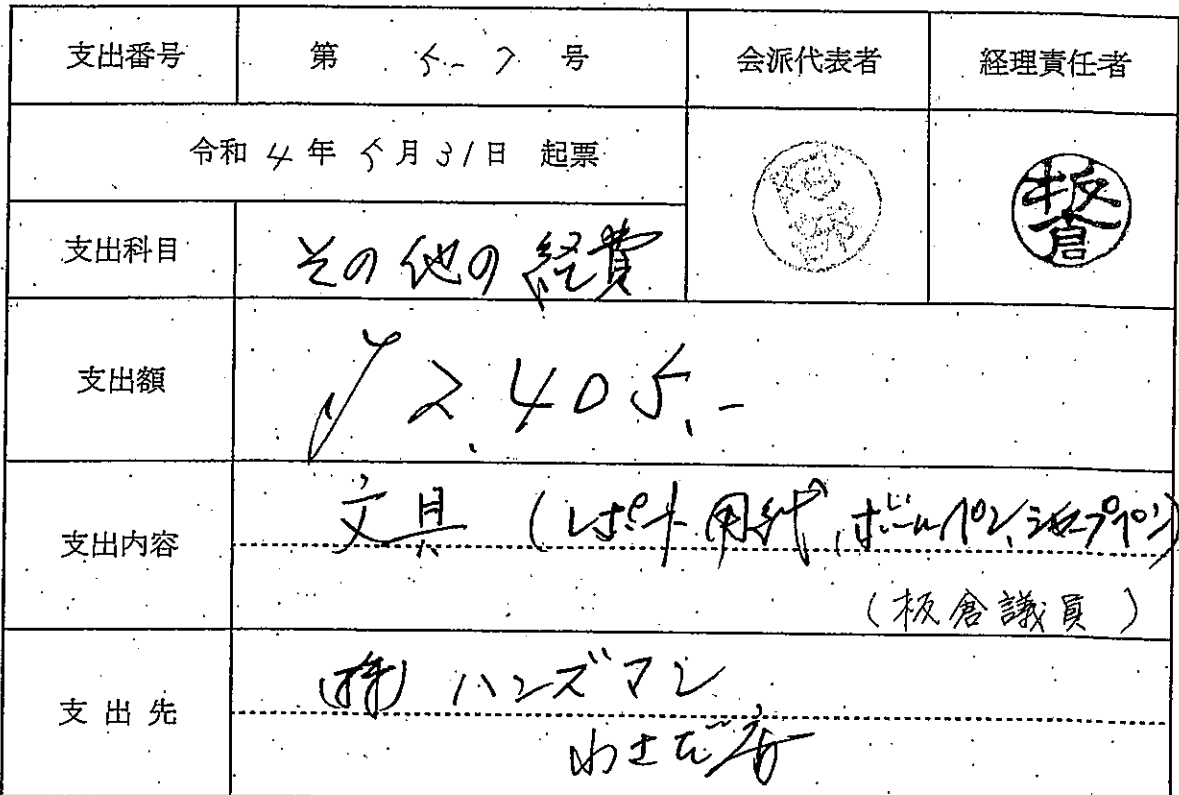 支出番号 第 5-7 号 会派代表者 経理責任者
令和 4 年 5 月 31 日 起票
板倉
支出科目 その他の経費
支出額 ¥2,405.-
支出内容 文具 (レポート用紙、ボールペン、シャープペン)
(板倉議員)
支出先 (株) ハンズマン
わさだ店